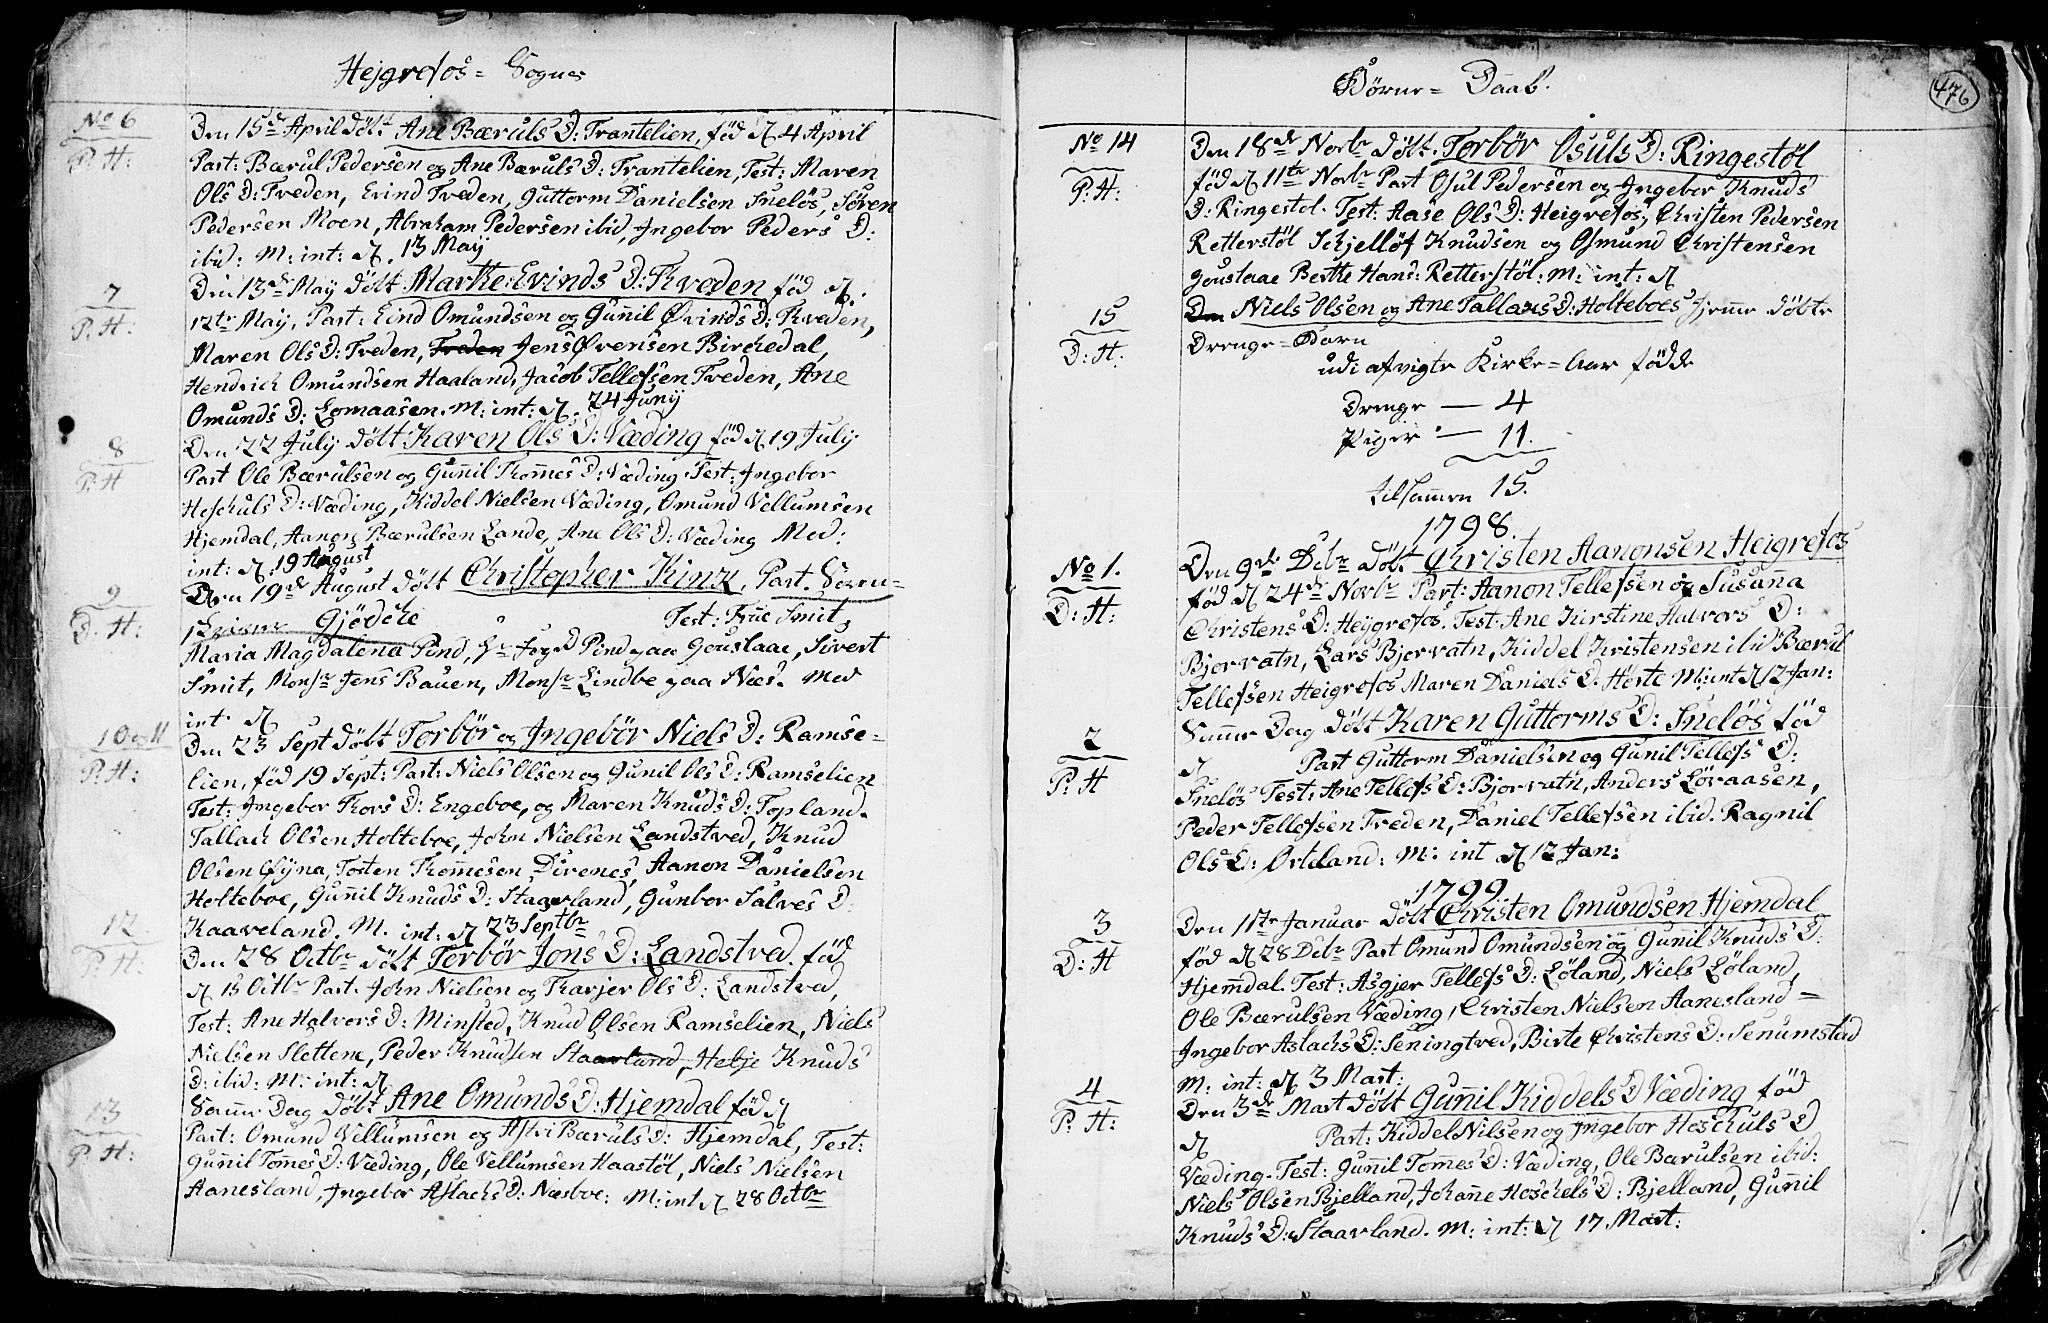 Hejgrefos = Sogne
No 6
P: H:
Den 15de April døbt Ane Bæruls D: Trantelien, fød d 4 April
Part: Bærul Pedersen og Ane Bæruls D: Trantelien, Test: Maren
Ols D: Treden, Evind Treden, Guttorm Danielsen Sneløs, Søren
Pedersen Moen, Abraham Pedersen ibid, Ingebor Peders D:
ibid: M: int: d. 13 Maij
7
P: H:
Den 13de Maij døbt Marthe Evinds D: Kveden fød d.
12te Maij, Part: Eind Omundsen og Gunil Øvinds D: Kveden,
Maren Ols D: Treden, Treden Jens Øvensen Birchedal,
Hendrich Omundsen Haaland, Jacob Tellefsen Treden, Ane
Omunds D: Lomaasen. M: int: d. 24 Junij
8
P: H
Den 22 July døbt Karen Ols D: Væding fød d 19 July
Part Ole Bærulsen og Gunnil Thommes D: Væding Test: Ingebor
Hoschuls D: Væding, Kiddel Nielsen Væding, Omund Vellumsen
Hjemdal, Aanon Bærulsen Lande, Ane Ols D: Væding Mod:
int: d 19 August
9
D: H:
Den 19de August døbt Christopher Kinx, Part. Soren=
skriver Gjødche Test: Frue Smit,
Maria Magdalena Pind, Hr Foged Pind paa Gouslaae, Sivert
Smit, Monsr Jens Bauen, Monsr Lindbe paa Næs. Mod
int. d
10 og 11
P: H:
Den 23 Sept døbt Torbør og Ingebør Niels D: Ramse=
lien, fød 19 Sept: Part: Niels Olsen og Gunil Ols D: Ramselien
Test: Ingebor Thors D: Engeboe, og Maren Knuds D: Topland.
Tallach Olsen Holteboe, John Nielsen Landstved, Knud
Olsen Øyna, Tosten Thommesen Direnes, Aanon Danielsen
Holteboe, Gunnil Knuds D: Staavland, Gunbor Salves D:
Kaaveland. M. int: d 23 Septbr
12
P: H:
Den 28 Octbr døbt Torbør Jons D: Landstved. fød
d 13 Octbr Part. John Nielsen og Tharjer Ols D: Landstved,
Test: Ane Halvors D: Minsted, Knud Olsen Ramselien, Niels
Nielsen Slettene, Peder Knudsen Staavland, Helje Knuds
D: ibid: M: int: d
13
P: H:
Samme Dag døbt Ane Omunds D: Hjemdal fød d
Part: Omund Vellumsen og Astri Bæruls D: Hjemdal, Test:
Gunnil Tommes D: Væding, Ole Vellumsen Haastøl, Niels Nielsen
Aanesland, Ingebor Aslachs D: Næsboe: M: int d 28 Octbr
Børne = Daab.
476
No 14
P: H:
Den 18de Novbr døbt. Torbør Osuls D: Ringestøl
fød d 11te Novbr Part Osul Pedersen og Ingebor Knuds
D: Ringestol. Test: Aase Ols D: Heigrefos, Christen Pedersen
Retterstøl Schjelløf Knudsen og Osmund Christensen
Gouslaae Berthe Hans: Retterstøl. M: int: d
15
D: H:
Den Niels Olsen og Ane Tallaxs D: Holteboes hjemme døbte
Drenge = Børn
udi afvigte Kirke = Aar fødde
Drenge — 4
Piger — 11.
tilsammen 15.
1798.
No 1.
D: H:
Den 9de Debr døbt Christen Aanonsen Heigrefos
fød d 24de Novbr Part: Aanon Tellefsen og Susanna
Christens D: Heygrefos. Test. Ane Kirstine Halvors D:
Bjorvatn, Lars Bjorvatn, Kiddel Kristensen ibid Bærul
Tellefsen Heigrefos Maren Daniels D. Høste M: int d 12 Jan:
2
P: H
Samme Dag døbt Karen Guttorms D: Sneløs fød
d Part Guttorm Danielsen og Gunil Tellefs D:
Sneløs Test: Ane Tellefs D: Bjorvatn, Anders Løvaasen,
Peder Tellefsen Treden, Daniel Tellefsen ibid. Ragnil
Ols D:Ørteland: M: int d 12 Jan:
1799
3
D: H
Den 11te Januar døbt Christen Omundsen Hjemdal
fød d 28 Debr Part Omund Omundsen og Gunnil Knuds D:
Hjemdal. Test: Asgjer Tellefs D: Løland, Niels Løland,
Ole Bærulsen Væding, Christen Nielsen Aanesland =
Ingebor Aslachs D: Seningtved, Birte Christens D: Senumstad
M: int: d 3 Mart:
4
P: H:
Den 3de Mart døbt Gunnil Kiddels D Væding fød
d Part: Kiddel Nilsen og Ingebor Hoschuls D
Væding. Test: Gunnil Tommes D: Væding, Ole Bærulsen ibid:
Niels Olsen Bjelland, Johanne Hoschels D: Bjelland, Gunnil
Knuds D: Staavland. M: int: d 17 Mart: